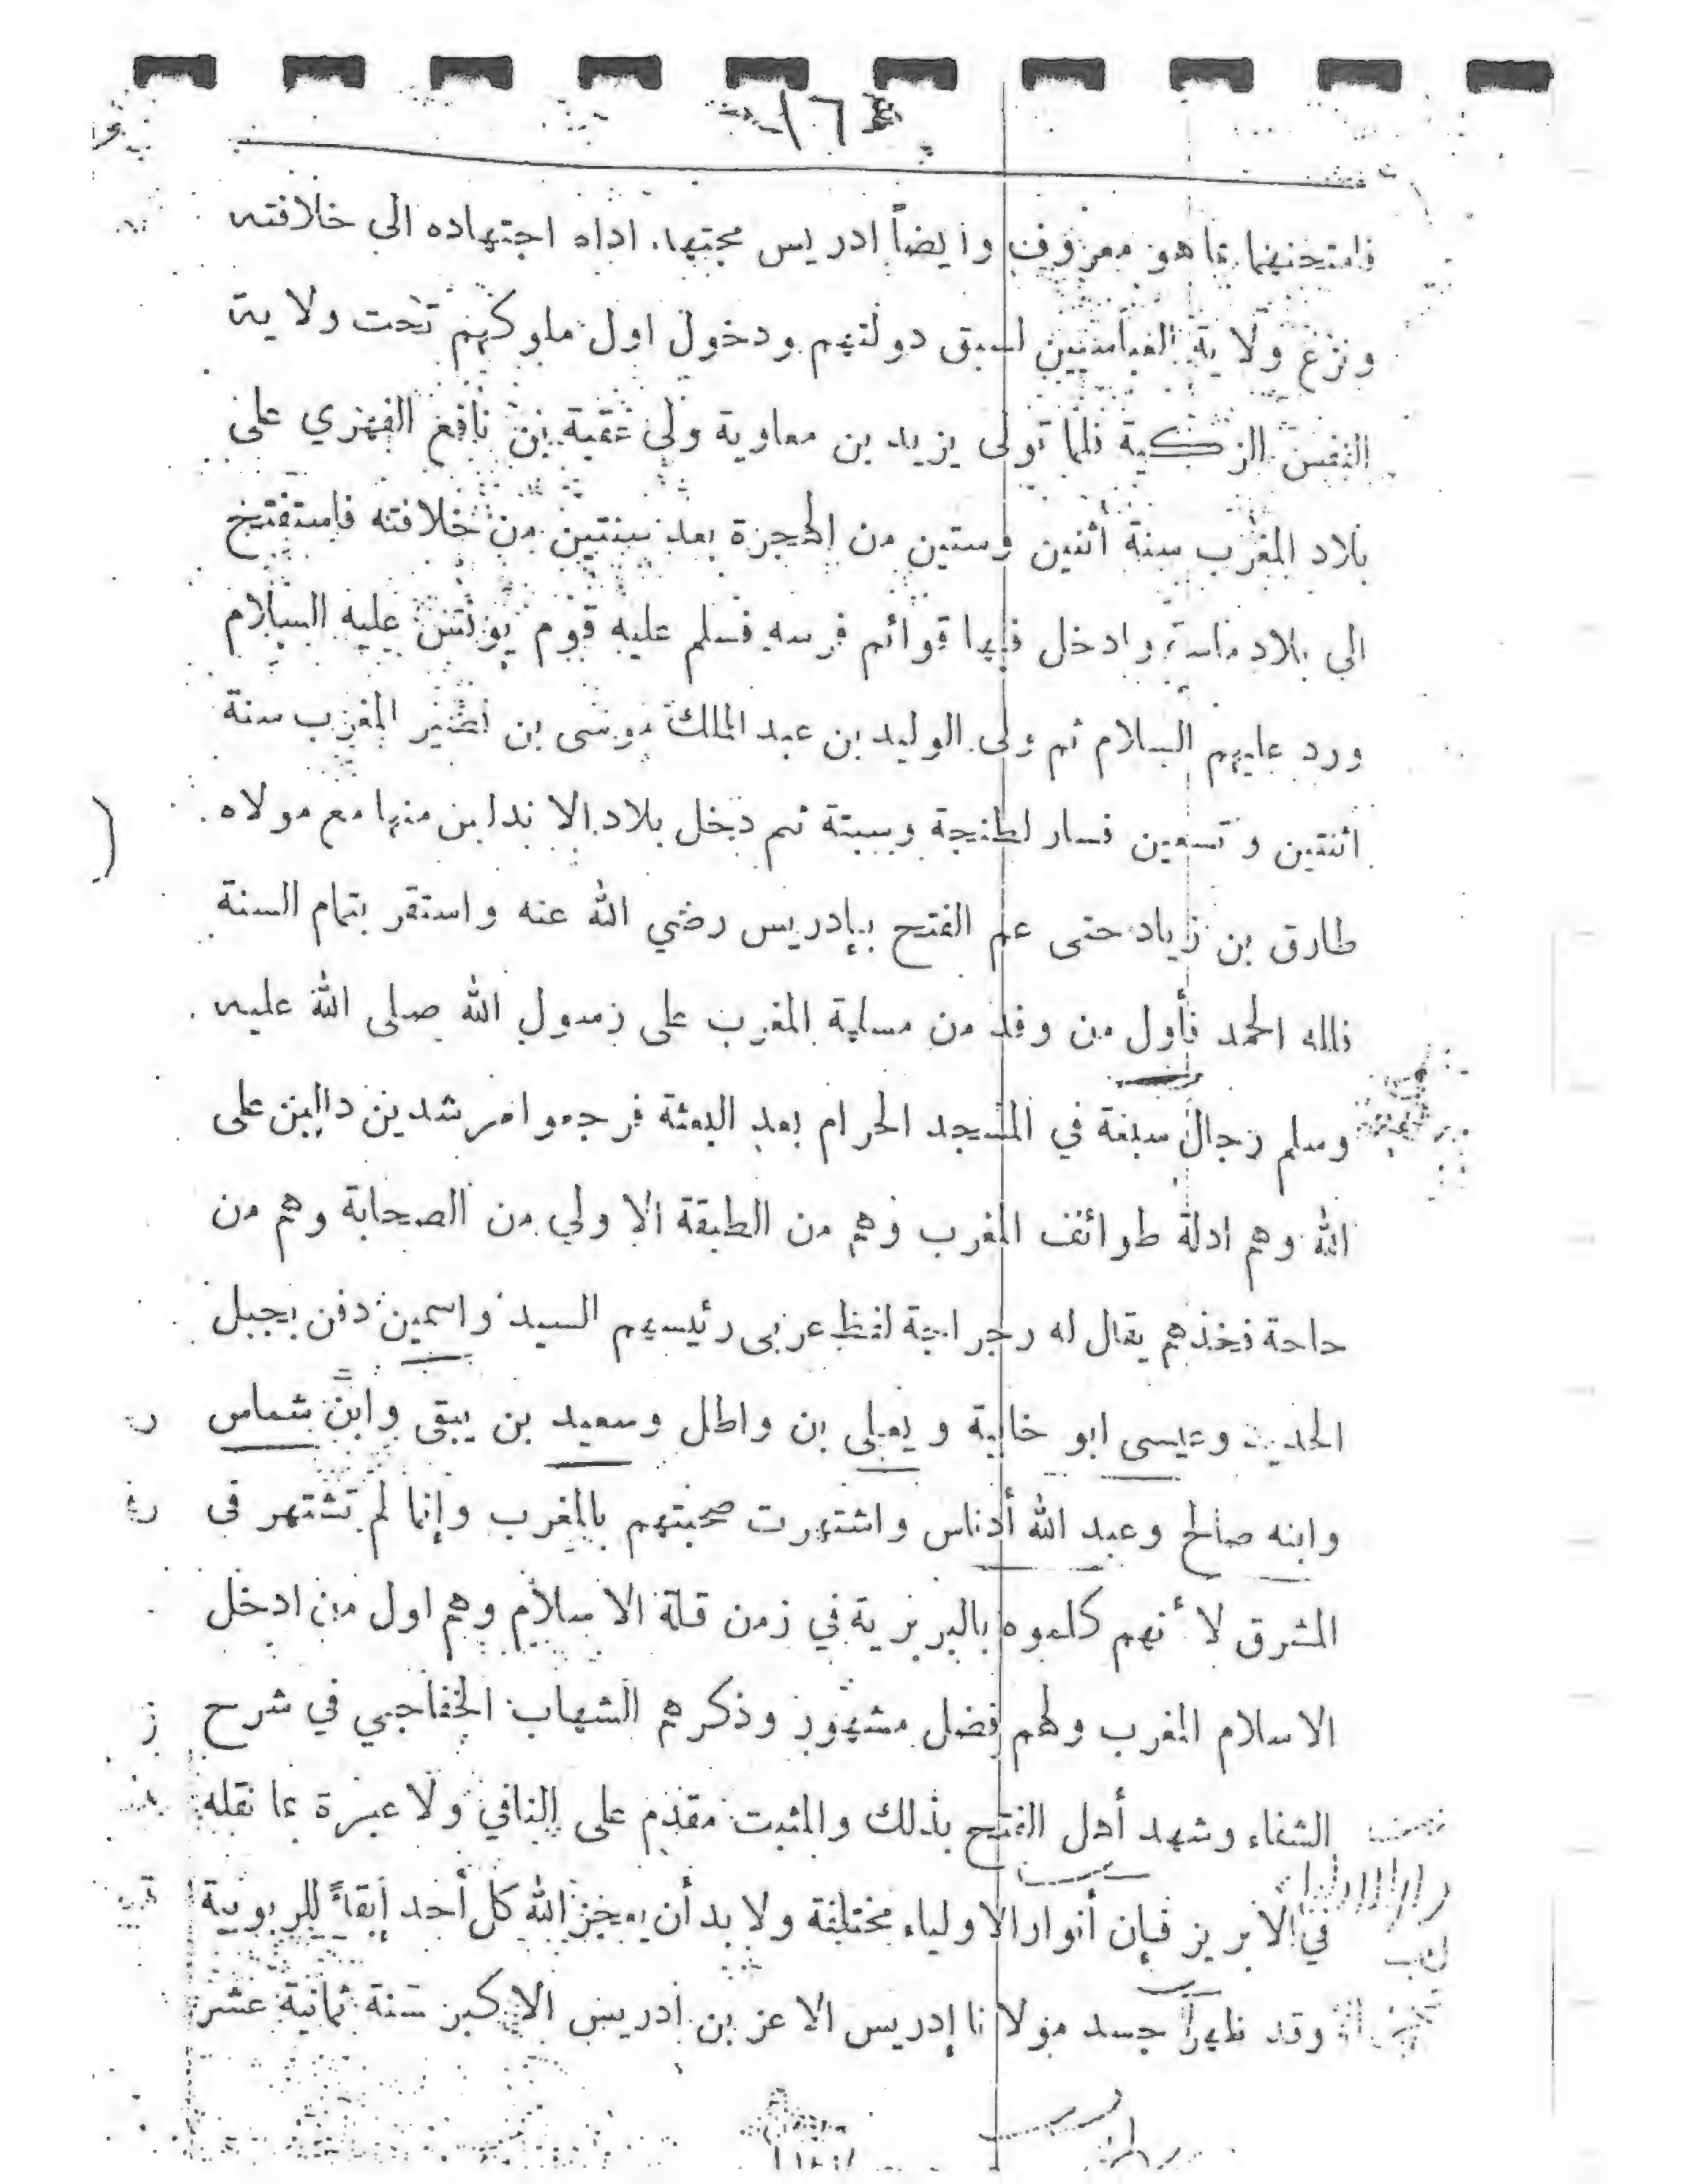 ١٦
فامتحنهما بما هو معروف وايضاً ادريس مجتهد اداه اجتهاده الى خلافته
ونزع ولاية العباسيين لسبق دولتهم ودخول اول ملوكهم تحت ولاية
النفس الزكية فلما تولى يزيد بن معاوية ولى عقبة بن نافع الفهري على
بلاد المغرب سنة اثنين وستين من الهجرة بعد سنتين من خلافته فاستفتح
الى بلاد ماسة وادخل فيها قوائم فرسه فسلم عليه قوم يونس عليه السلام
ورد عليهم السلام ثم ولى الوليد بن عبد الملك موسى بن نصير المغرب سنة
اثنتين وتسعين فسار لطنجة وسبتة ثم دخل بلاد الاندلس منها مع مولاه
طارق بن زياد حتى عم الفتح بإدريس رضي الله عنه واستقر بتمام السنة
فلله الحمد فأول من وفد من مسلمة المغرب على رسول الله صلى الله عليه
وسلم رجال سبعة في المسجد الحرام بعد البعثة فرجعوا مرشدين دالين على
الله وهم ادلة طوائف المغرب وهم من الطبقة الاولي من الصحابة وهم من
حاحة فخذهم يقال له رجراجة لفظ عربى رئيسهم السيد واسمين دفن بجبل
الحديد وعيسى ابو خابية ويعلى بن واطل وسعيد بن يبقى وابن شماس
وابنه صالح وعبد الله أدناس واشتهرت صحبتهم بالمغرب وإنما لم تشتهر فى
المشرق لأنهم كلموه بالبربرية في زمن قلة الاسلام وهم اول من ادخل
الاسلام المغرب ولهم فضل مشهور وذكرهم الشهاب الخفاجي في شرح
الشفاء وشهد أهل الفتح بذلك والمثبت مقدم على النافي ولا عبرة بما نقله
في الابريز فإن أنوار الاولياء مختلفة ولا بد أن يعجز الله كل أحد إبقاءً للربوبية
وقد ظهر جسد مولانا إدريس الاعز بن ادريس الاكبر سنة ثمانية عشر